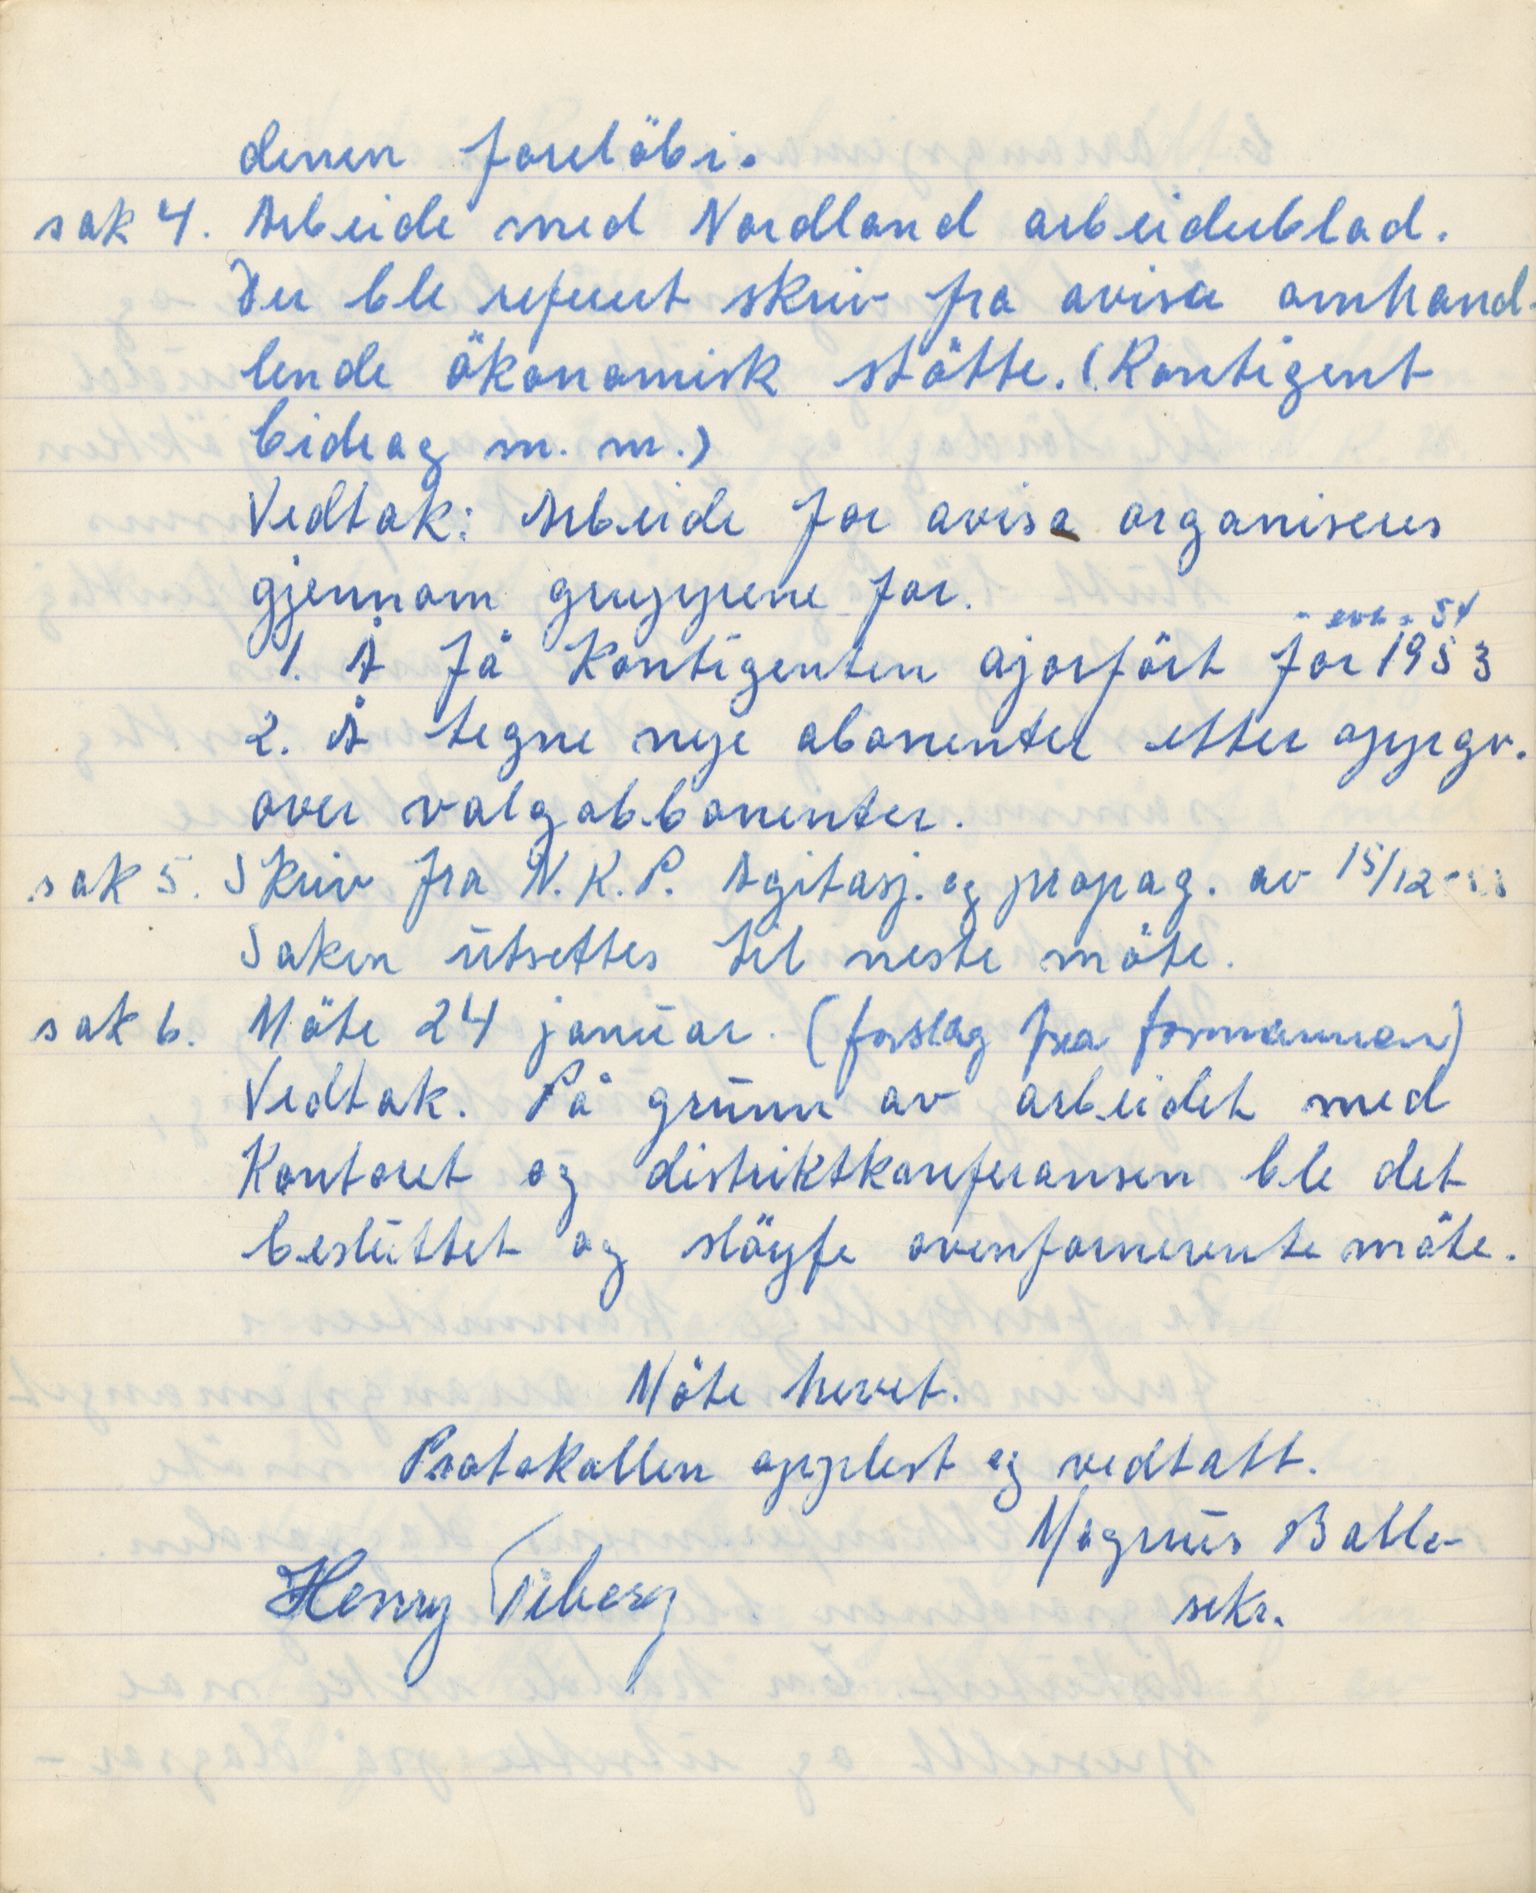 denen forelöbi.
sak 4. Arbeide med Nordland arbeiderblad.
Der ble referert skriv fra avisa omhand-
lende ökonomisk stötte. (Kontigent
bidrag m. m.)
Vedtak: Arbeide for avisa organiseres
gjennom gruppene for.
- evt. - 54
1. Å få Kontigenten ajorfört for 1953
2. Å tegne nye abonenter etter oppgv.
over valgabbonenter.
sak 5. Skriv fra N. K. P. Agitasj. og propag. av 15/12-
Saken utsettes til neste möte.
sak 6. Möte 24 januar. (forslag fra formannen)
Vedtak. På grunn av arbeidet med
Kontoret og distriktkonferansen ble det
besluttet og slöyfe ovenfornevente möte.
Möte hevet.
Protokollen opplest og vedtatt.
Magnus Balle-
Henry Tiberg
sekr.